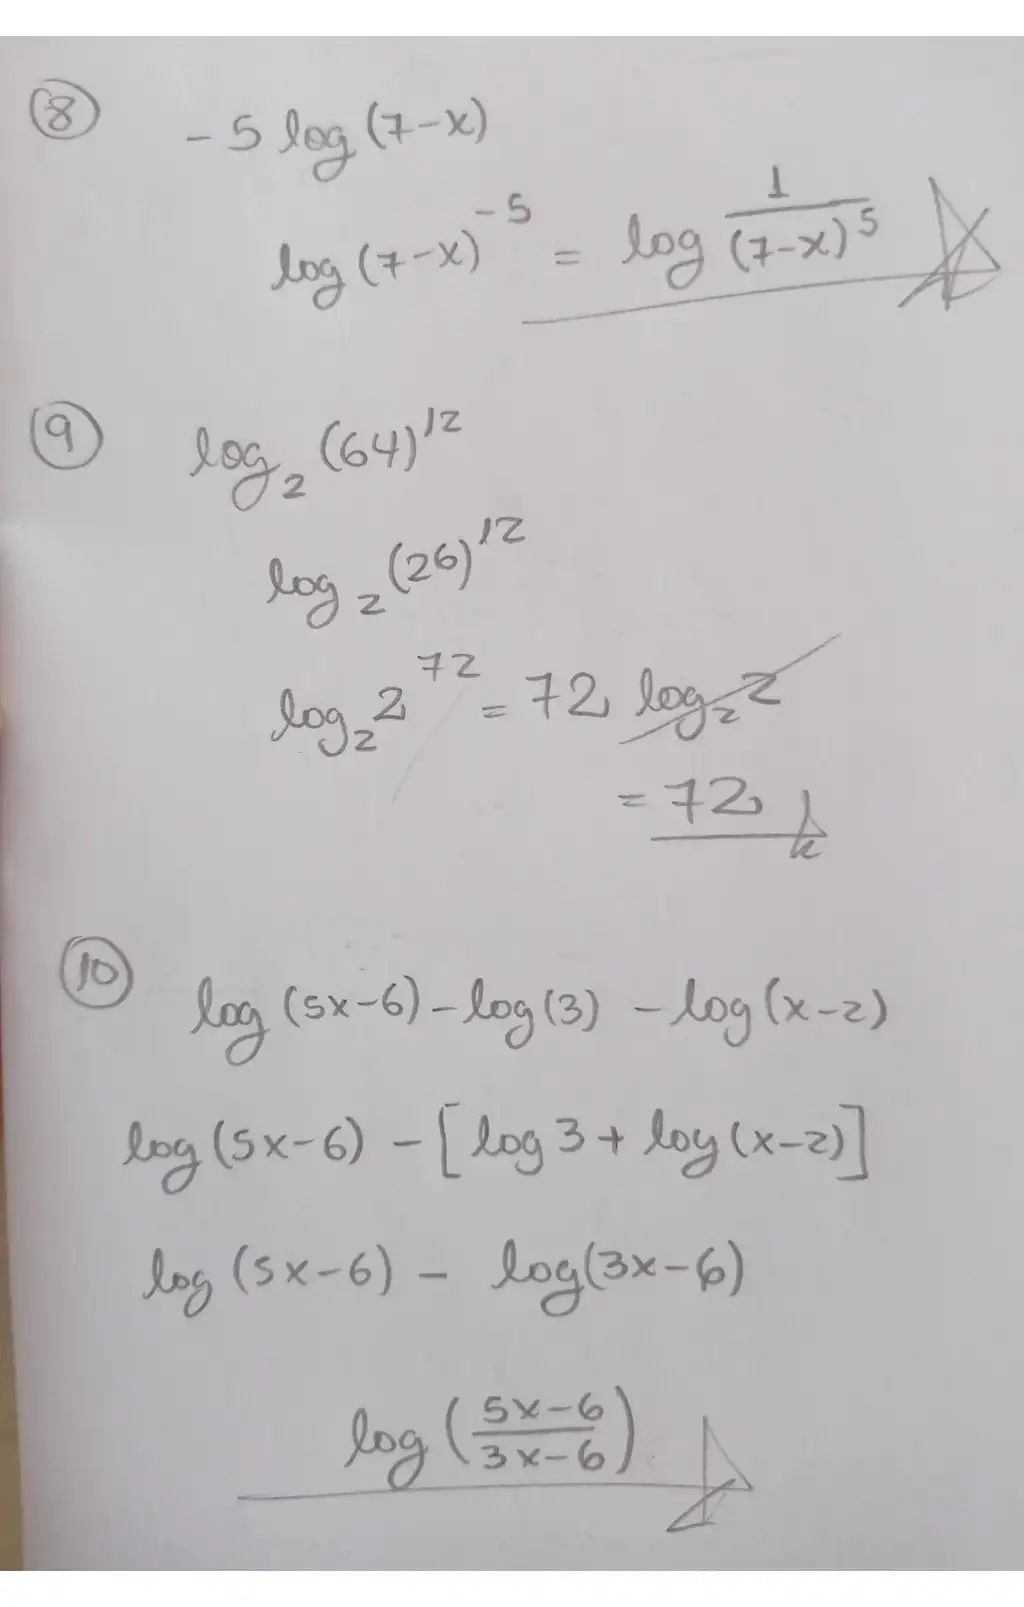 ⑧ -5 log (7-x)
log (7-x)⁻⁵ = log 1/(7-x)⁵
⑨ log₂ (64)¹²
log₂ (26)¹²
log₂ 2⁷² = 72 log₂ 2
= 72
⑩ log (5x-6) - log (3) - log (x-2)
log (5x-6) - [log 3 + log (x-2)]
log (5x-6) - log(3x-6)
log ((5x-6)/(3x-6))